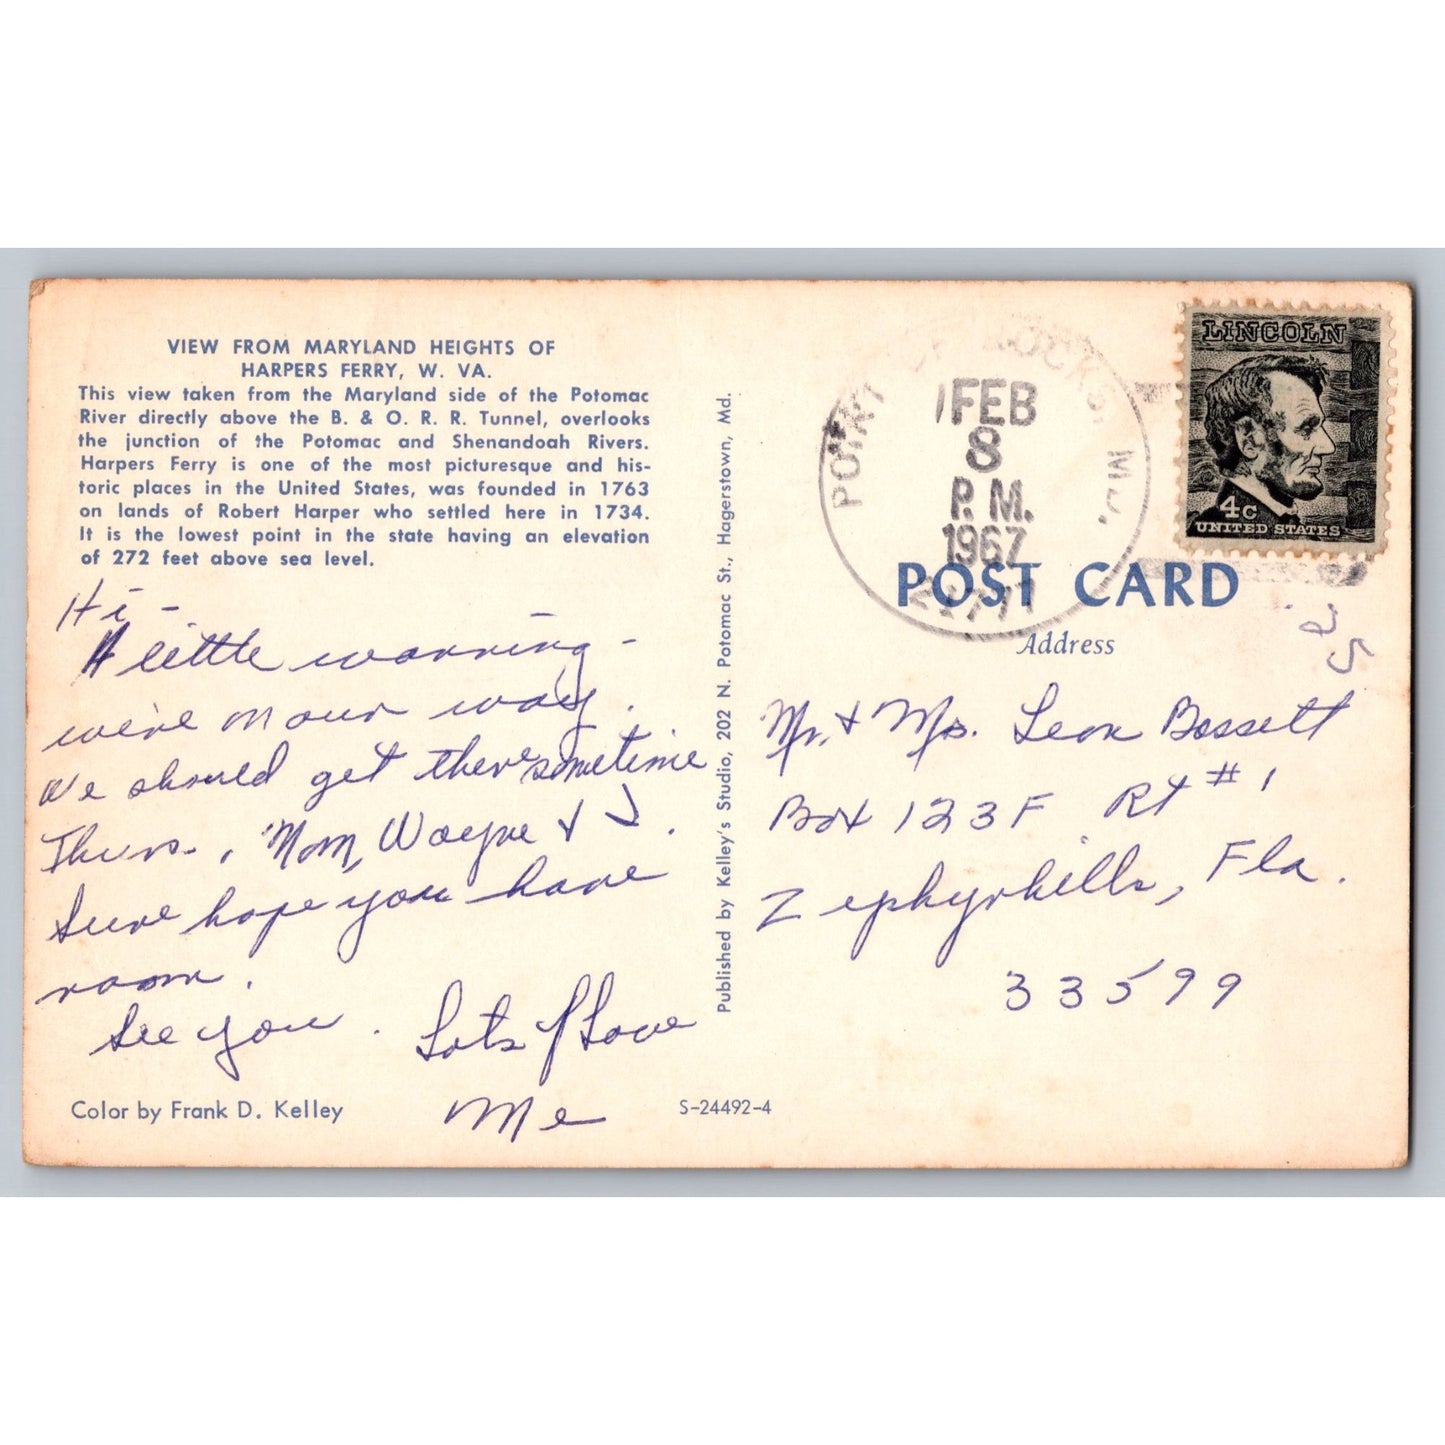 VIEW FROM MARYLAND HEIGHTS OF
HARPERS FERRY, W. VA.
This view taken from the Maryland side of the Potomac
River directly above the B. & O. R. R. Tunnel, overlooks
the junction of the Potomac and Shenandoah Rivers.
Harpers Ferry is one of the most picturesque and his-
toric places in the United States, was founded in 1763
on lands of Robert Harper who settled here in 1734.
It is the lowest point in the state having an elevation
of 272 feet above sea level.
Hi -
A little warning -
we're on our way.
We should get there sometime
Thurs., Mom, Wayne & I.
Sure hope you have
room.
See you. Lots of Love
Me
Color by Frank D. Kelley
S-24492-4
Published by Kelley's Studio, 202 N. Potomac St., Hagerstown, Md.
POINT OF ROCKS, MD.
FEB
8
P. M.
1967
21777
LINCOLN
4c
UNITED STATES
POST CARD
Address
.25
Mr. & Mrs. Leon Bassett
Box 123F Rt #1
Zephyrhills, Fla.
33599